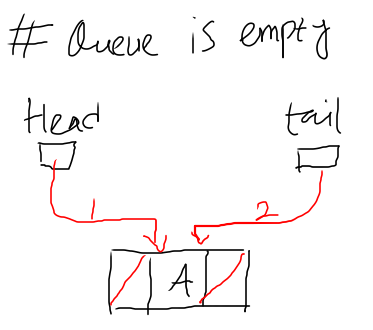 # Queue is empty
Head tail
1 2
A